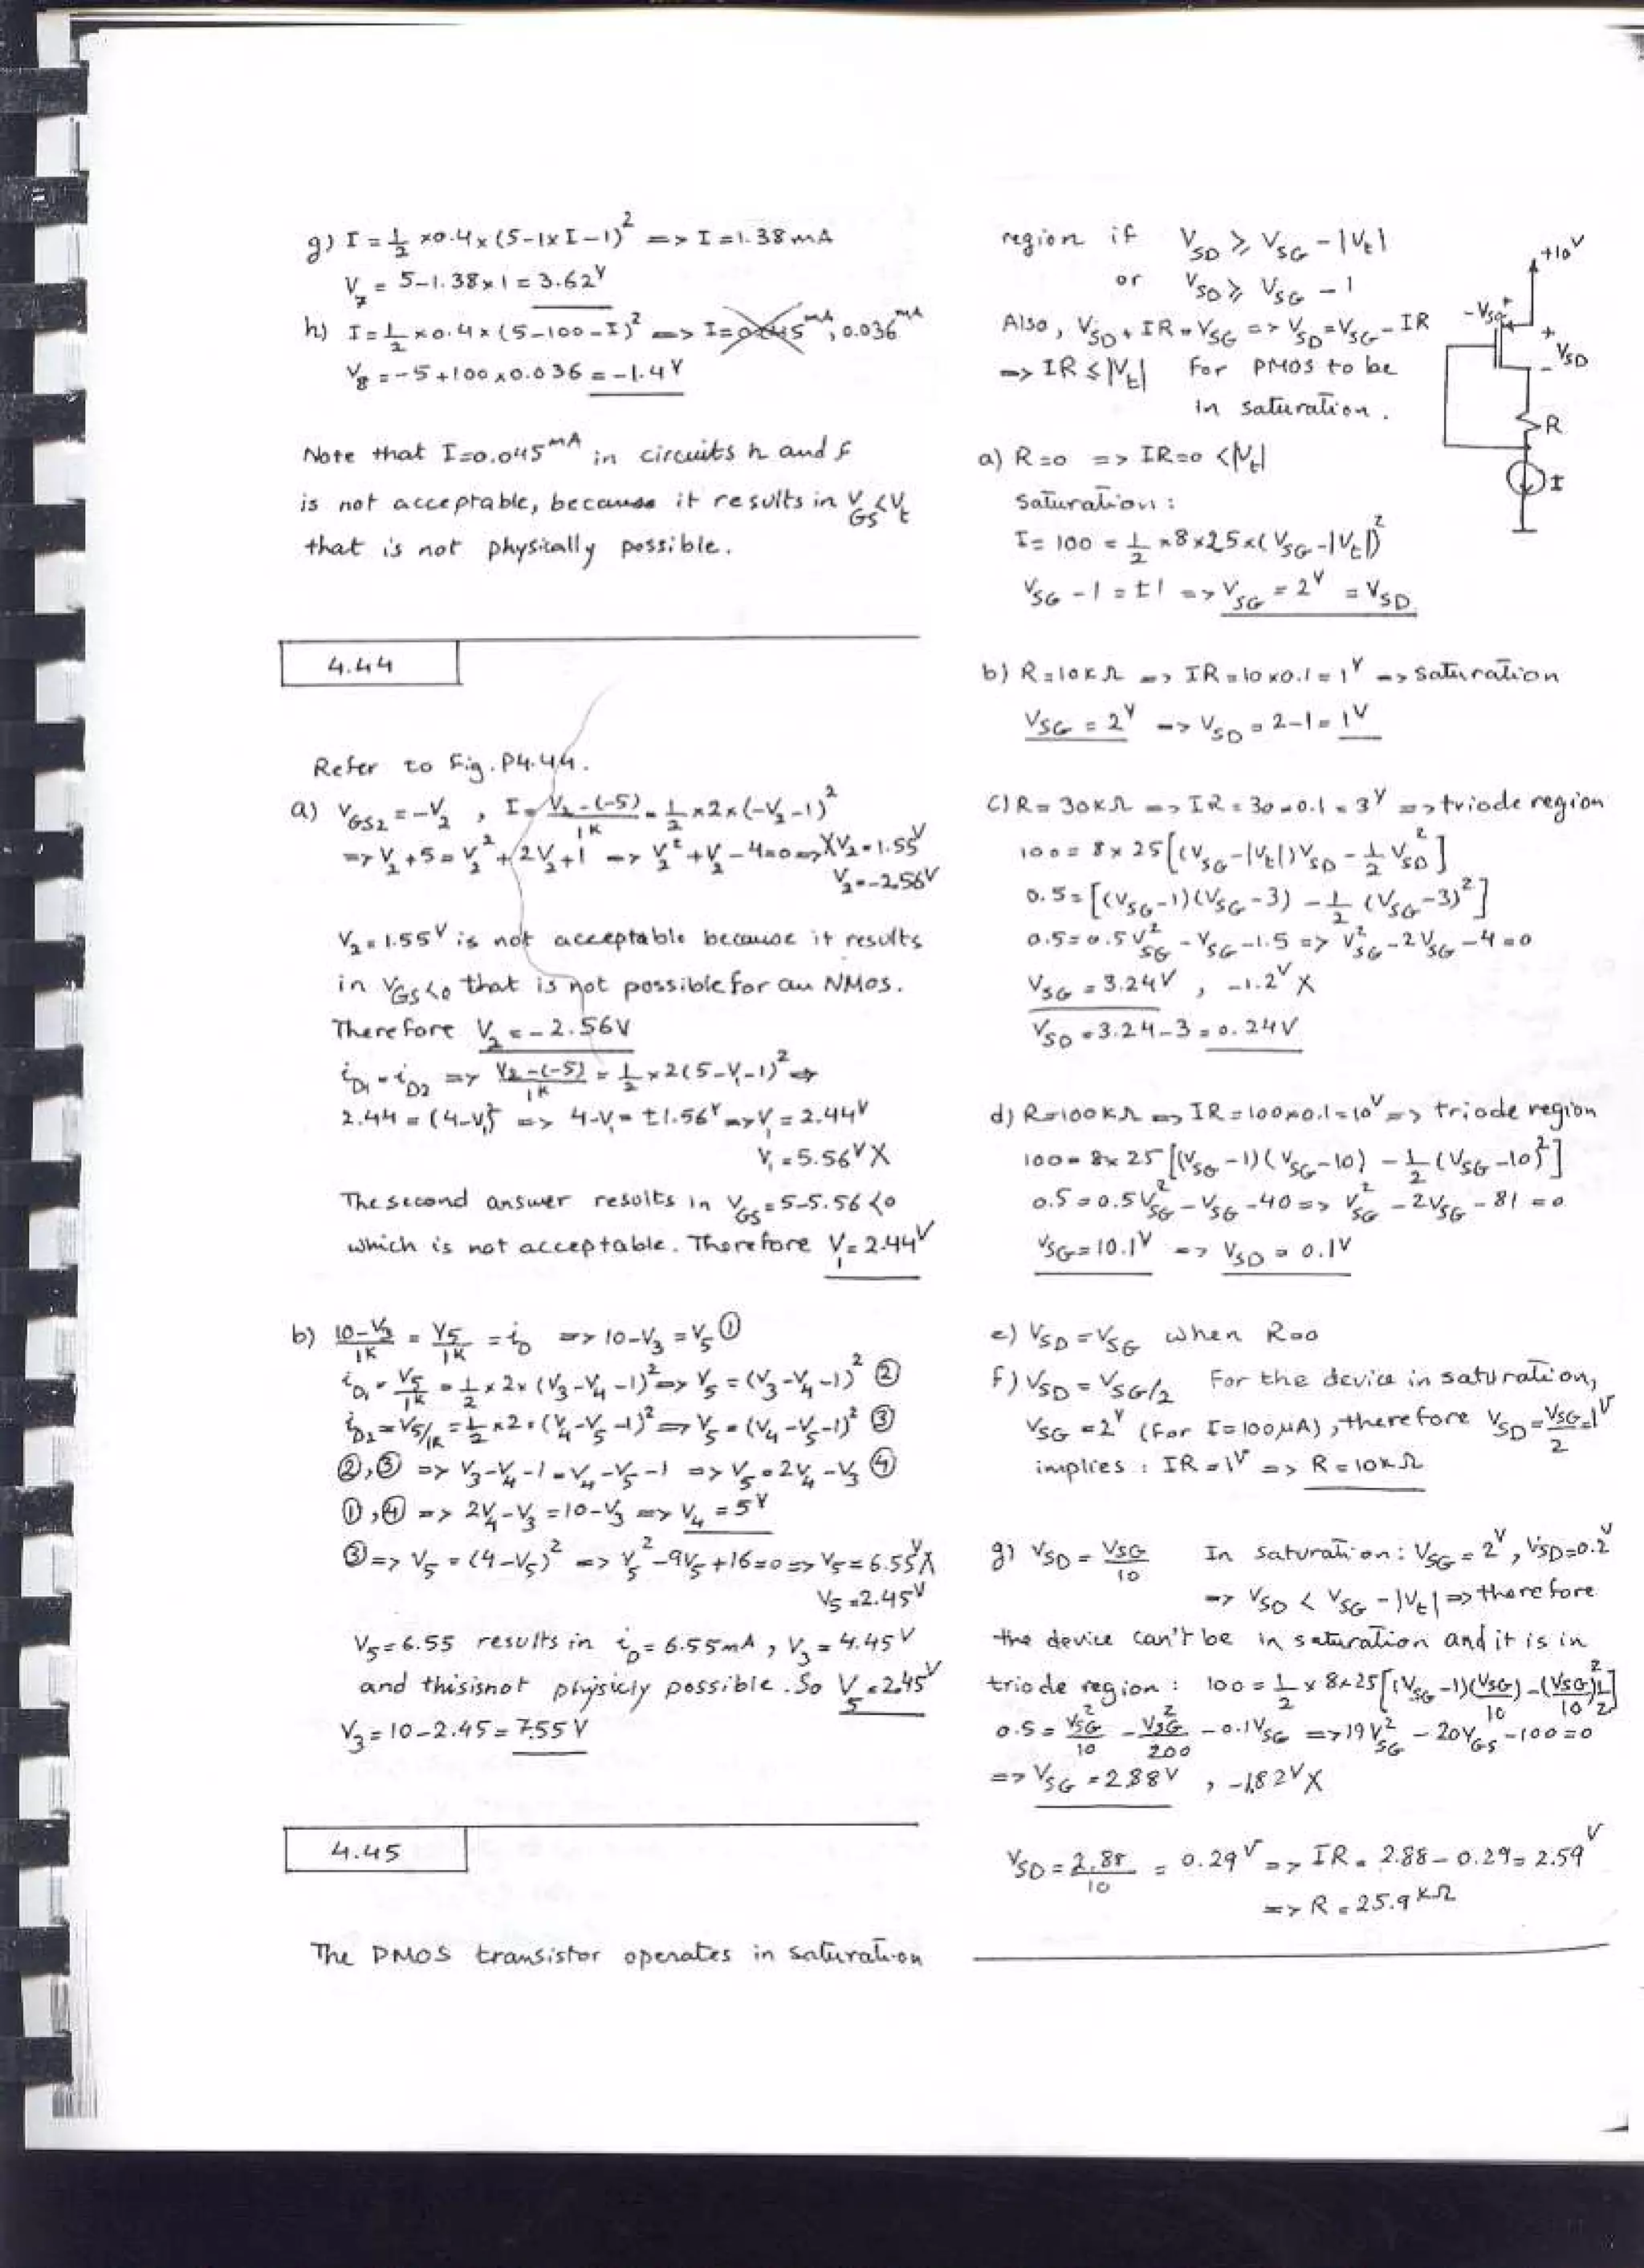 g) I = 1/2 × 0.4 × (5 - 1 × I - 1)² => I = 1.38 mA
V₇ = 5 - 1.38 × 1 = 3.62ⱽ
h) I = 1/2 × 0.4 × (5 - 100 - I)² => I = 0.045 mA, 0.036 mA
V₈ = -5 + 100 × 0.036 = -1.4ⱽ
Note that I = 0.045 mA in circuits h and f
is not acceptable, because it results in V_GS < V_t
that is not physically possible.
4.44
Refer to Fig. P4.44.
a) V_GS2 = -V₂ , I = (V₂ - (-5))/1K = 1/2 × 2 × (-V₂ - 1)²
=> V₂ + 5 = V₂² + 2V₂ + 1 => V₂² + V₂ - 4 = 0 => X V₂ = 1.55ⱽ
V₂ = -2.56ⱽ
V₂ = 1.55ⱽ is not acceptable because it results
in V_GS < 0 that is not possible for an NMOS.
Therefore V₂ = -2.56V
i_D1 = i_D2 => (V₂ - (-5))/1K = 1/2 × 2(5 - V₁ - 1)² =>
2.44 = (4 - V₁)² => 4 - V₁ = ±1.56ⱽ => V₁ = 2.44ⱽ
V₁ = 5.56ⱽ X
The second answer results in V_GS = 5 - 5.56 < 0
which is not acceptable. Therefore V₁ = 2.44ⱽ
b) (10 - V₃)/1K = V₅/1K = i_D => 10 - V₃ = V₅ ①
i_D1 = V₅/1K = 1/2 × 2 × (V₃ - V₄ - 1)² => V₅ = (V₃ - V₄ - 1)² ②
i_D2 = V₅/1K = 1/2 × 2 × (V₄ - V₅ - 1)² => V₅ = (V₄ - V₅ - 1)² ③
②,③ => V₃ - V₄ - 1 = V₄ - V₅ - 1 => V₅ = 2V₄ - V₃ ④
①,④ => 2V₄ - V₃ = 10 - V₃ => V₄ = 5ⱽ
③ => V₅ = (4 - V₅)² => V₅² - 9V₅ + 16 = 0 => V₅ = 6.55ⱽ X
V₅ = 2.45ⱽ
V₅ = 6.55 results in i_D = 6.55mA , V₃ = 4.45ⱽ
and thisisnot physicly possible. So V₅ = 2.45ⱽ
V₃ = 10 - 2.45 = 7.55 V
4.45
The PMOS transistor operates in saturation
region if V_SD ≥ V_SG - |V_t|
or V_SD ≥ V_SG - 1
Also, V_SD + IR = V_SG => V_SD = V_SG - IR
=> IR ≤ |V_t| for PMOS to be
in saturation.
+10ⱽ
- V_SG +
+
V_SD
-
R
I
a) R = 0 => IR = 0 < |V_t|
Saturation :
I = 100 = 1/2 × 8 × 25 × (V_SG - |V_t|)²
V_SG - 1 = ±1 => V_SG = 2ⱽ = V_SD
b) R = 10KΩ => IR = 10 × 0.1 = 1ⱽ => saturation
V_SG = 2ⱽ => V_SD = 2 - 1 = 1ⱽ
c) R = 30KΩ => IR = 30 × 0.1 = 3ⱽ => triode region
100 = 8 × 25 [(V_SG - |V_t|) V_SD - 1/2 V_SD²]
0.5 = [(V_SG - 1)(V_SG - 3) - 1/2 (V_SG - 3)²]
0.5 = 0.5 V_SG² - V_SG - 1.5 => V_SG² - 2V_SG - 4 = 0
V_SG = 3.24V , -1.2ⱽ X
V_SD = 3.24 - 3 = 0.24V
d) R = 100KΩ => IR = 100 × 0.1 = 10ⱽ => triode region
100 = 8 × 25 [(V_SG - 1)(V_SG - 10) - 1/2 (V_SG - 10)²]
0.5 = 0.5 V_SG² - V_SG - 40 => V_SG² - 2V_SG - 81 = 0
V_SG = 10.1ⱽ => V_SD = 0.1V
e) V_SD = V_SG when R = 0
f) V_SD = V_SG/2 For the device in saturation,
V_SG = 2ⱽ (for I = 100μA), therefore V_SD = V_SG/2 = 1ⱽ
implies : IR = 1ⱽ => R = 10KΩ
g) V_SD = V_SG/10 In saturation: V_SG = 2ⱽ, V_SD = 0.2ⱽ
=> V_SD < V_SG - |V_t| => therefore
the device can't be in saturation and it is in
triode region : 100 = 1/2 × 8 × 25 [(V_SG - 1)(V_SG/10) - (V_SG/10)² 1/2]
0.5 = V_SG²/10 - V_SG²/200 - 0.1V_SG => 19V_SG² - 20V_GS - 100 = 0
=> V_SG = 2.88V , -1.82ⱽ X
V_SD = 2.88/10 = 0.29ⱽ => IR = 2.88 - 0.29 = 2.59ⱽ
=> R = 25.9KΩ